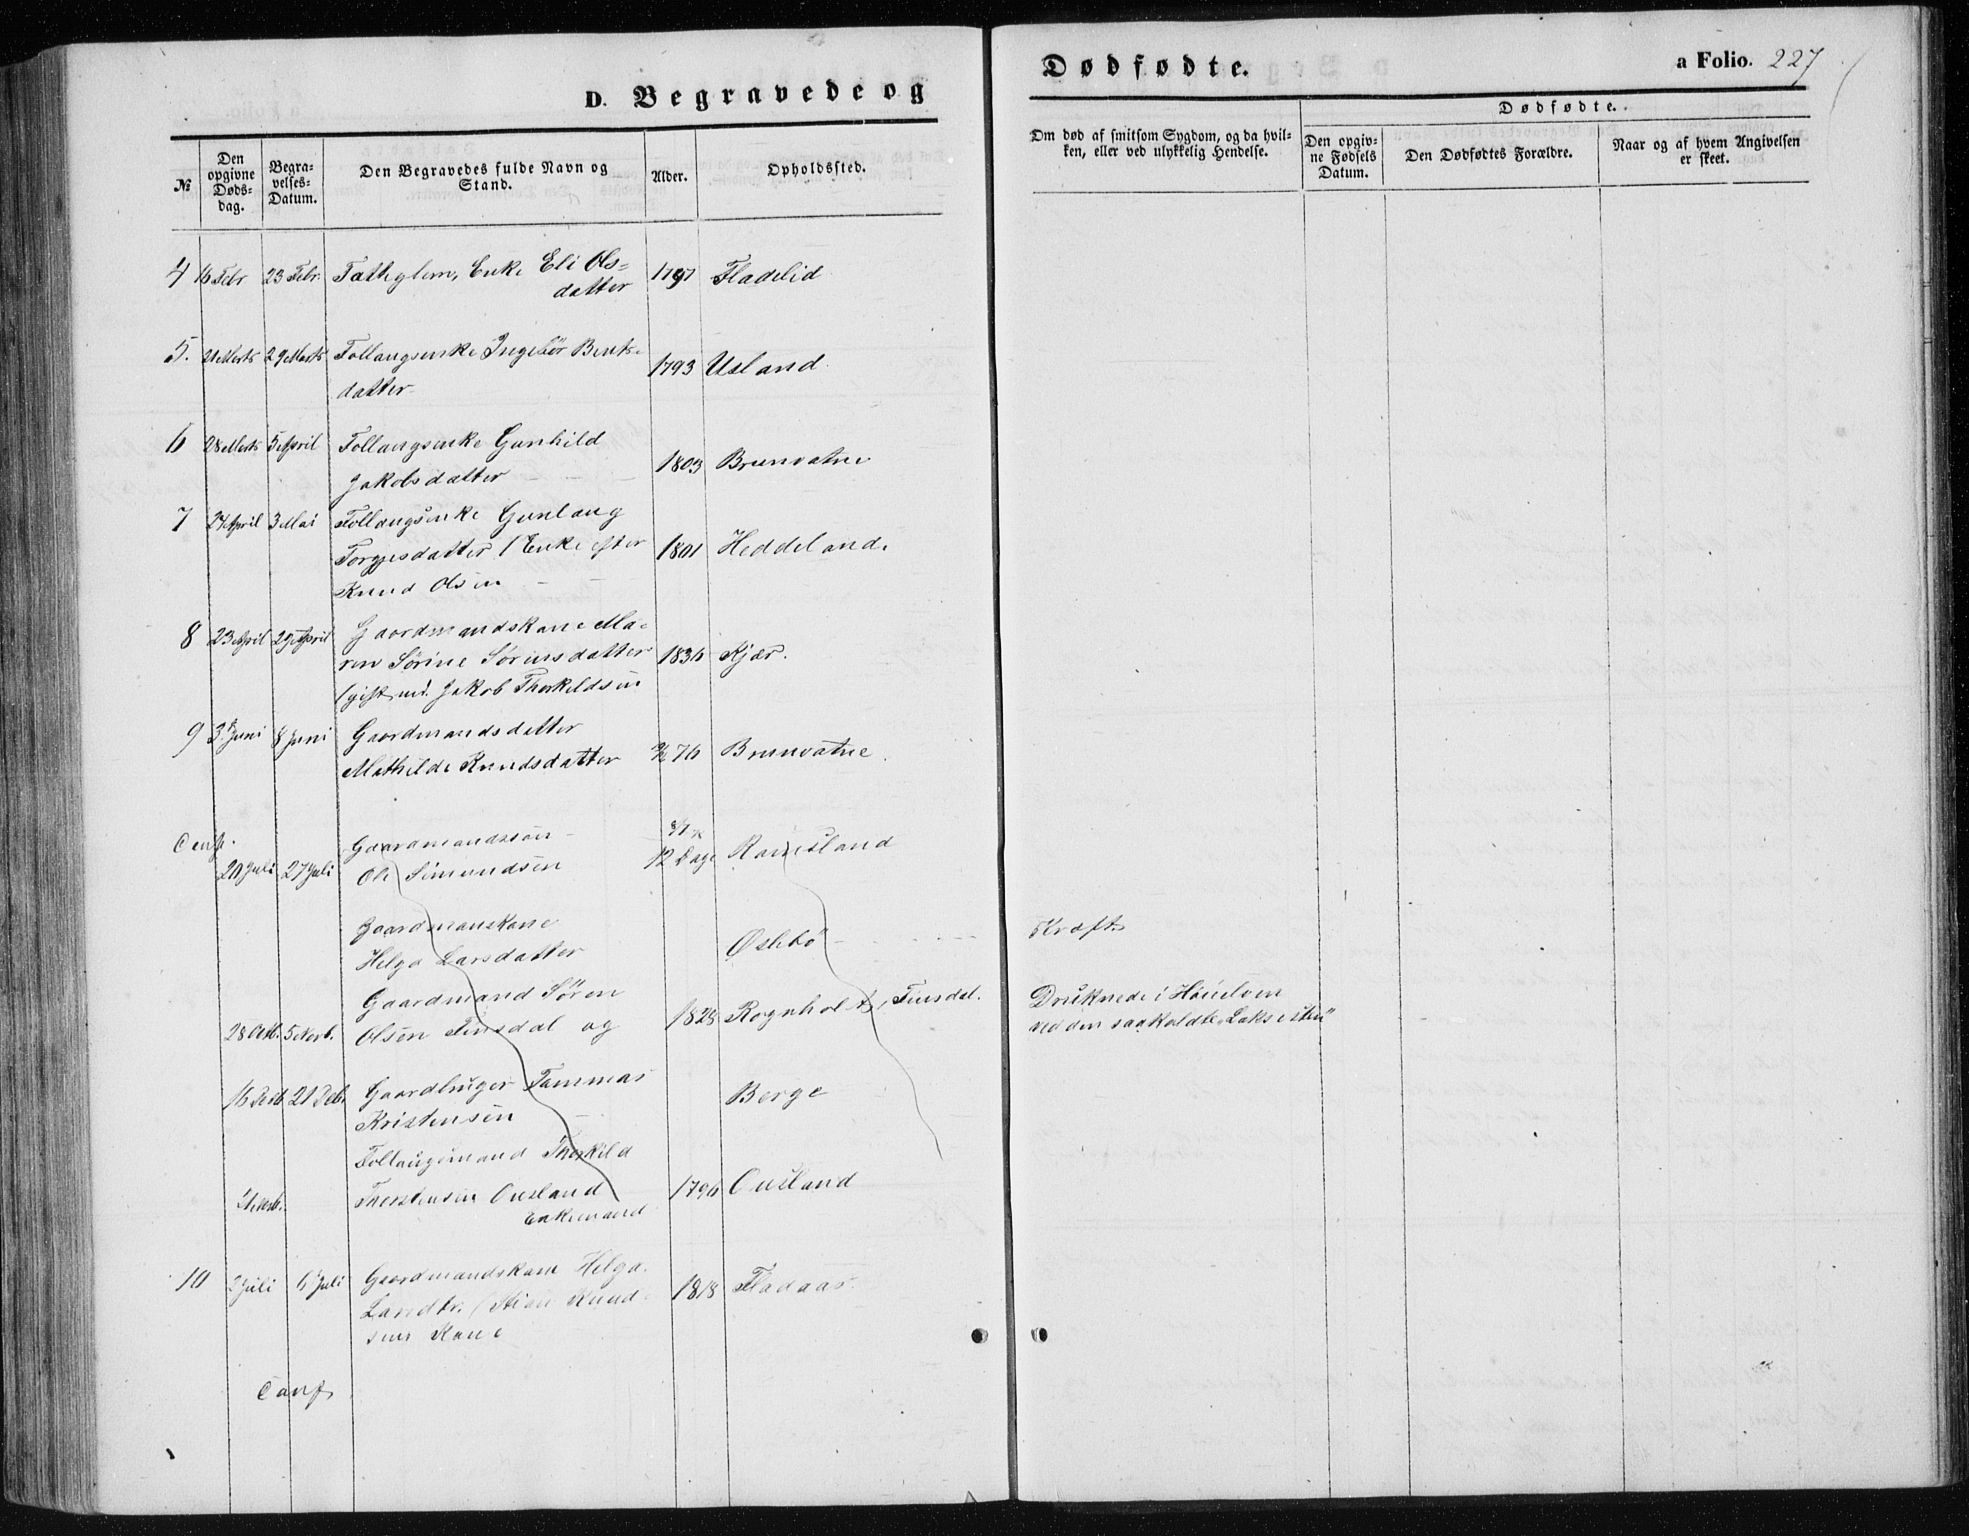 D. Begravede og
Dødfødte.
a Folio. 227
№
Den opgivne Døds-dag.
Begra-velses-Datum.
Den Begravedes fulde Navn og Stand.
Alder.
Opholdssted.
Om død af smitsom Sygdom, og da hvil-
ken, eller ved ulykkelig Hendelse.
Dødfødte.
Den opgiv-ne Fødsels Datum.
Den Dødfødtes Forældre.
Naar og af hvem Angivelsen er skeet.
4 16 Febr 23 Febr. Enke Eli Ols=
datter 1797 Fladelid
5. 21 Marts 29 Marts Follaugsenke Ingebör Bents-
datter 1793 Usland
6 28 Marts 5 April Follaugsenke Gunhild
Jakobsdatter 1803 Brunvatne
7 24 April 3 Mai Follaugsenke Gunlaug
Torgjesdatter (Enke efter 1801 Heddeland.
Knud Olsen
8 23 April 29 April Gaardmandskone Ma-
ren Sörine Sörensdatter 1836 Kjær.
(gift m. Jakob Thorkildsen
9 3 Juni 8 Juni Gaardmandsdatter
Mathilde Knudsdatter 76 Brunvatne.
Conf.
20 Juli 27 Juli Gaardmandssön
Ole Simundsen 12 Dage
Gaardmanskone
Helga Larsdatter Øslebö Kræft
Gaardmand Sören
28 Oktb. 5 Novb. Olsen Finsdal og 1828 Rognholt, Finsdal.
Druknede i
ved den saakaldte „Laksesten”
16 Decb 21 Decb Gaardbruger Tommas
Kristensen Berge
Follaugsmand Thorkild
Thorstensen Ousland 1796 Ousland
Enkemand
10 2 Juli 6 Juli Gaardmandskone Helga
Larsdtr. (Stian Knud-
sens Kone 1818 Fladaas.
Conf.